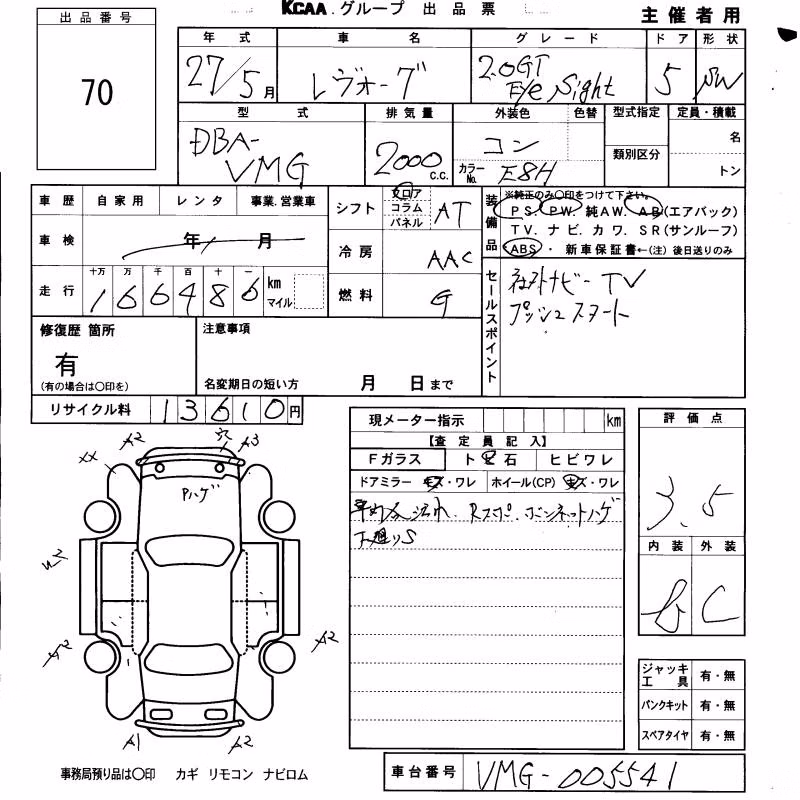 KCAA.グループ 出品票
主催者用
出品番号
70
年式 車名 グレード ドア 形状
27/5月 レヴォーグ 2.0GT 5 SW
EyeSight
型式 排気量 外装色 色替 型式指定 定員・積載
DBA- 2000c.c. コン 名
VMG カラーNo. E8H 類別区分 トン
車歴 自家用 レンタ 事業.営業車
シフト フロア コラム パネル AT
装備品 ※純正のみ○印をつけて下さい。
PS. PW. 純AW. AB(エアバック)
TV. ナビ. カワ. SR(サンルーフ)
ABS・ 新車保証書←(注) 後日送りのみ
車検 年 月
冷房 AAC
走行 十万 万 千 百 十 一 km マイル
166486
燃料 G
セールスポイント 社外ナビー TV
プッシュスタート
修復歴 箇所
有
(有の場合は○印を)
注意事項
名変期日の短い方 月 日まで
リサイクル料 13610円
現メーター指示 km
【査定員記入】
Fガラス ト ビ 石 ヒビワレ
ドアミラー キズ・ワレ ホイール(CP) キズ・ワレ
Rスポ. ボンネットハゲ
下廻りS
評価点
3.5
内装 外装
C
ジャッキ工具 有・無
パンクキット 有・無
スペアタイヤ 有・無
XX A2 穴 A3
Pハゲ
A2
A1 A2
事務局預り品は○印 カギ リモコン ナビロム
車台番号 VMG-005541